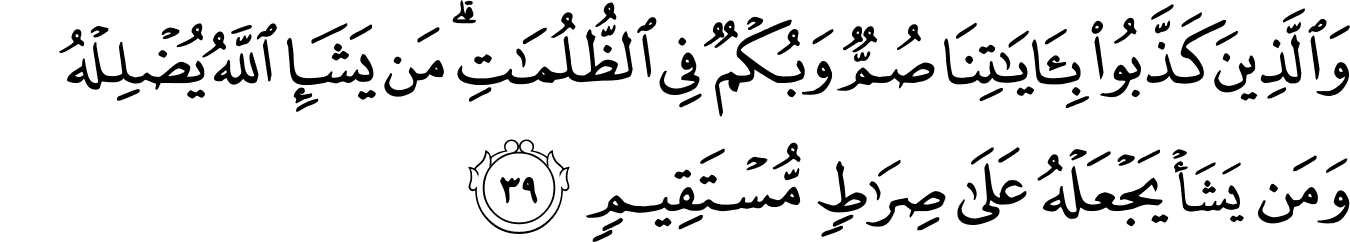 وَٱلَّذِينَ كَذَّبُوا۟ بِـَٔايَـٰتِنَا صُمٌّۭ وَبُكْمٌۭ فِى ٱلظُّلُمَـٰتِ ۗ مَن يَشَإِ ٱللَّهُ يُضْلِلْهُ
وَمَن يَشَأْ يَجْعَلْهُ عَلَىٰ صِرَٰطٍۢ مُّسْتَقِيمٍۢ ٣٩